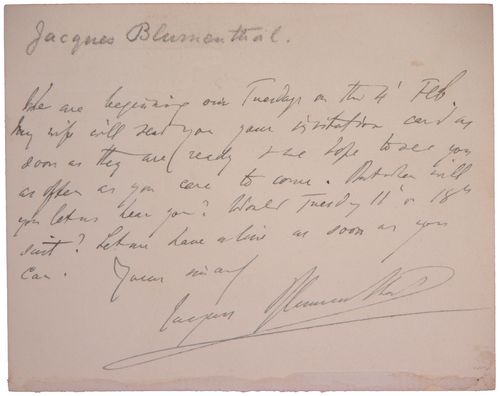 Jacques Blumenthal.
We are beginning our Tuesdays on the 4' Feb
My wife will send you your invitation card as
soon as they are ready & we hope to see you
as often as you care to come. But when will
you let us hear you? Would Tuesday 11' or 18th
suit? Let me have a line as soon as you
can. Yours
Jacques Blumenthal